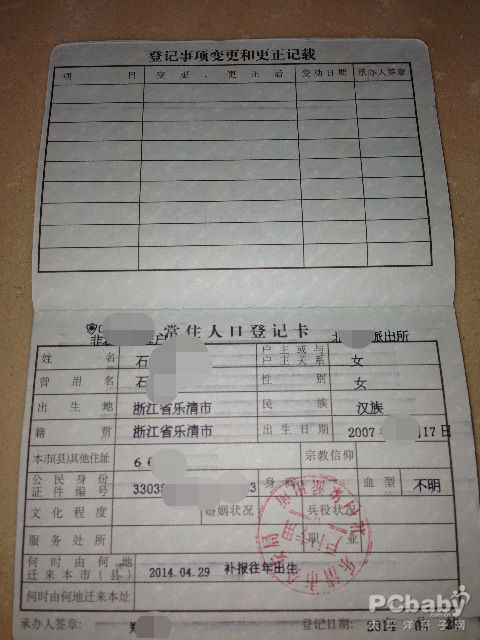 登记事项变更和更正记载
项 目 变更、更正后 变动日期 承办人签章
常住人口登记卡
派出所
姓名 石 户主或与户主关系 女
曾用名 石 性别 女
出生地 浙江省乐清市 民族 汉族
籍贯 浙江省乐清市 出生日期 2007 17日
本市(县)其他住址 6 宗教信仰
公民身份证件编号 3303 3 身 血型 不明
文化程度 婚姻状况 兵役状况
服务处所 职业
何时由何地迁来本市(县) 2014.04.29 补报往年出生
何时由何地迁来本址
承办人签章: 登记日期: 2014
PCbaby
太平洋亲子网